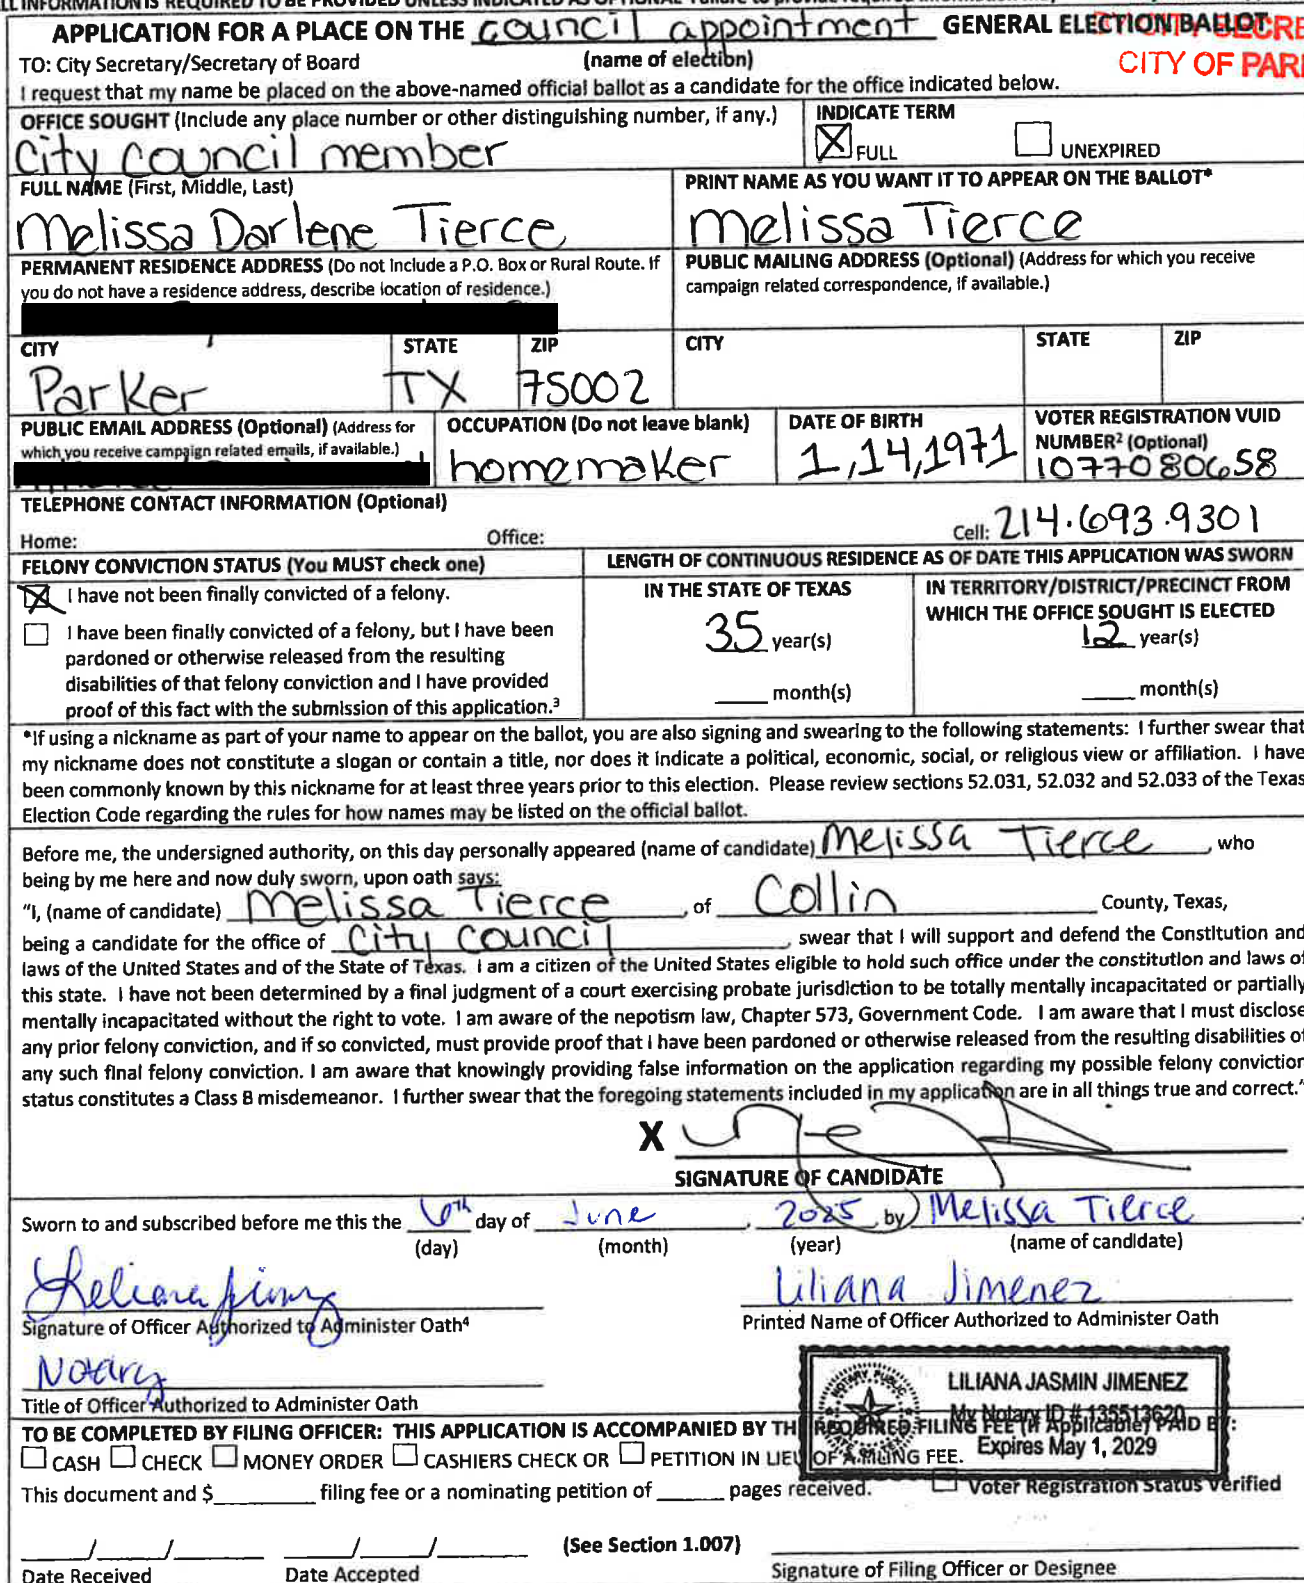 LL INFORMATION IS REQUIRED TO BE PROVIDED UNLESS INDICATED AS OPTIONAL
APPLICATION FOR A PLACE ON THE council appointment GENERAL ELECTION BALLOT
TO: City Secretary/Secretary of Board (name of election)
CITY OF PAR
I request that my name be placed on the above-named official ballot as a candidate for the office indicated below.
OFFICE SOUGHT (Include any place number or other distinguishing number, if any.) INDICATE TERM
City Council member X FULL UNEXPIRED
FULL NAME (First, Middle, Last) PRINT NAME AS YOU WANT IT TO APPEAR ON THE BALLOT*
Melissa Darlene Tierce Melissa Tierce
PERMANENT RESIDENCE ADDRESS (Do not include a P.O. Box or Rural Route. If you do not have a residence address, describe location of residence.)
PUBLIC MAILING ADDRESS (Optional) (Address for which you receive campaign related correspondence, if available.)
CITY STATE ZIP CITY STATE ZIP
Parker TX 75002
PUBLIC EMAIL ADDRESS (Optional) (Address for which you receive campaign related emails, if available.)
OCCUPATION (Do not leave blank) DATE OF BIRTH VOTER REGISTRATION VUID NUMBER² (Optional)
homemaker 1,14,1971 1077080658
TELEPHONE CONTACT INFORMATION (Optional)
Home: Office: Cell: 214.693.9301
FELONY CONVICTION STATUS (You MUST check one) LENGTH OF CONTINUOUS RESIDENCE AS OF DATE THIS APPLICATION WAS SWORN
X I have not been finally convicted of a felony.
I have been finally convicted of a felony, but I have been
pardoned or otherwise released from the resulting
disabilities of that felony conviction and I have provided
proof of this fact with the submission of this application.³
IN THE STATE OF TEXAS
35 year(s)
month(s)
IN TERRITORY/DISTRICT/PRECINCT FROM
WHICH THE OFFICE SOUGHT IS ELECTED
12 year(s)
month(s)
*If using a nickname as part of your name to appear on the ballot, you are also signing and swearing to the following statements: I further swear that
my nickname does not constitute a slogan or contain a title, nor does it indicate a political, economic, social, or religious view or affiliation. I have
been commonly known by this nickname for at least three years prior to this election. Please review sections 52.031, 52.032 and 52.033 of the Texas
Election Code regarding the rules for how names may be listed on the official ballot.
Before me, the undersigned authority, on this day personally appeared (name of candidate) Melissa Tierce, who
being by me here and now duly sworn, upon oath says:
"I, (name of candidate) Melissa Tierce, of Collin County, Texas,
being a candidate for the office of City Council, swear that I will support and defend the Constitution and
laws of the United States and of the State of Texas. I am a citizen of the United States eligible to hold such office under the constitution and laws of
this state. I have not been determined by a final judgment of a court exercising probate jurisdiction to be totally mentally incapacitated or partially
mentally incapacitated without the right to vote. I am aware of the nepotism law, Chapter 573, Government Code. I am aware that I must disclose
any prior felony conviction, and if so convicted, must provide proof that I have been pardoned or otherwise released from the resulting disabilities of
any such final felony conviction. I am aware that knowingly providing false information on the application regarding my possible felony conviction
status constitutes a Class B misdemeanor. I further swear that the foregoing statements included in my application are in all things true and correct."
X
SIGNATURE OF CANDIDATE
Sworn to and subscribed before me this the 6th day of June, 2025, by Melissa Tierce
(day) (month) (year) (name of candidate)
Liliana Jimenez
Signature of Officer Authorized to Administer Oath⁴ Printed Name of Officer Authorized to Administer Oath
Notary
Title of Officer Authorized to Administer Oath
NOTARY PUBLIC
LILIANA JASMIN JIMENEZ
My Notary ID # 135513620
Expires May 1, 2029
TO BE COMPLETED BY FILING OFFICER: THIS APPLICATION IS ACCOMPANIED BY THE REQUIRED FILING FEE (If Applicable) PAID BY:
CASH CHECK MONEY ORDER CASHIERS CHECK OR PETITION IN LIEU OF A FILING FEE.
This document and $ filing fee or a nominating petition of pages received. Voter Registration Status Verified
/ / / / (See Section 1.007)
Date Received Date Accepted Signature of Filing Officer or Designee